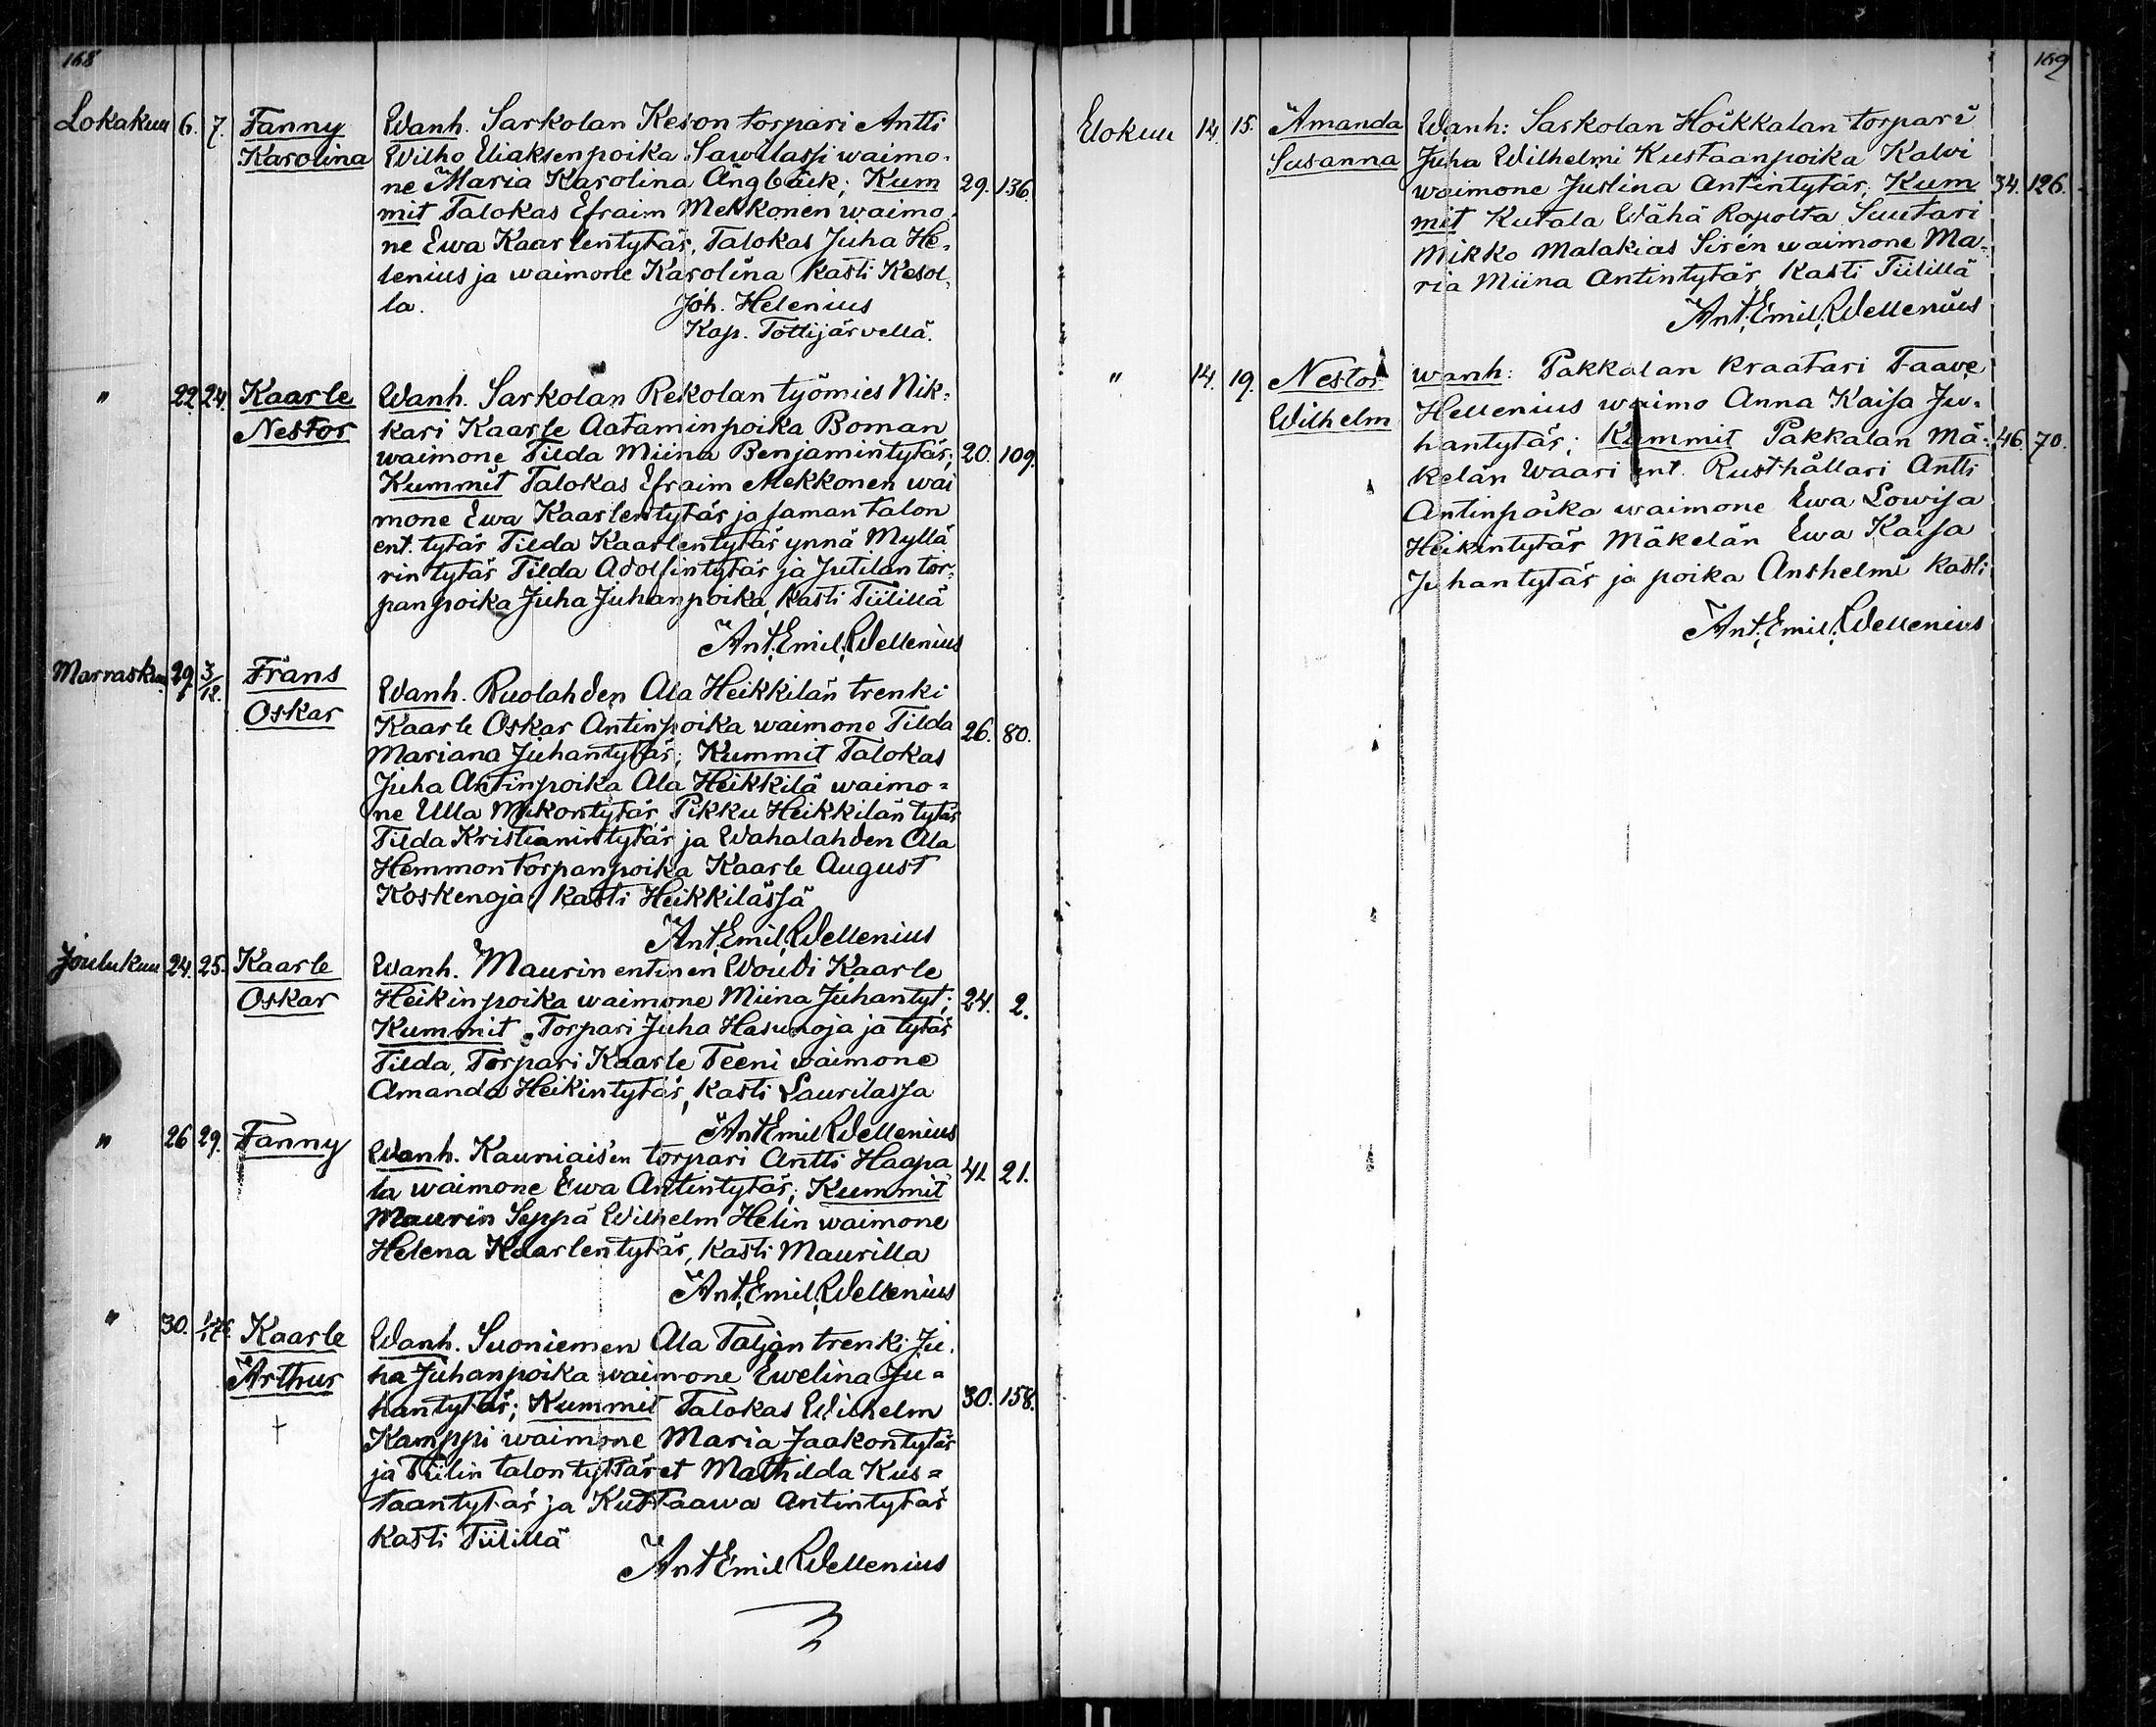 168
Lokakuu 6. 7. Fanny Wanh. Sarkolan Keson torpari Antti
Karolina Wilho Eliaksenpoika Sawilassi waimo-
ne Maria Karolina Ängbäck; Kum 29. 136.
mit Talokas Efraim Mekkonen waimo
ne Ewa Kaarlentytär, Talokas Juha He-
lenius ja waimone Karolina kasti Kesol-
la. Joh. Helenius
Kap. Tottijärvellä.
" 22 24. Kaarle Wanh. Sarkolan Rekolan työmies Nik-
Nestor kari Kaarle Aataminpoika Boman
waimone Tilda Miina Benjamintytär; 20. 109.
Kummit Talokas Efraim Mekkonen wai
mone Ewa Kaarlentytär ja saman talon
ent. tytär Tilda Kaarlentytär ynnä Myllä
rin tytär Tilda Adolfintytär ja Jutilan tor-
panpoika Juha Juhanpoika, kasti Tiilillä
Ant. Emil. Wellenius
Marraskuu 29 3/12. Frans
Oskar Wanh. Ruolahden Ala Heikkilän trenki
Kaarle Oskar Antinpoika waimone Tilda 26. 80.
Mariana Juhantytär; Kummit Talokas
Juha Antinpoika Ala Heikkilä waimo-
ne Ulla Mikontytär, Pikku Heikkilän tytär
Tilda Kristianintytär ja Wahalahden Ala
Hemmon torpanpoika Kaarle August
Koskenoja, kasti Heikkilässä
Ant. Emil. Wellenius
Joulukuu 24. 25. Kaarle Wanh. Maurin entinen Woudi Kaarle
Oskar Heikinpoika waimone Miina Juhantyt; 24. 2.
Kummit Torpari Juha Hasunoja ja tytär
Tilda, Torpari Kaarle Teeni waimone
Amanda Heikintytär, kasti Laurilassa
Ant Emil Wellenius
" 26 29. Fanny Wanh. Kauniaisen torpari Antti Haapa
la waimone Ewa Antintytär; Kummit 41 21.
Maurin Seppä Wilhelm Helin waimone
Helena Kaarlentytär, kasti Maurilla
Ant. Emil. Wellenius
" 30. Kaarle Wanh. Suoniemen Ala Taljan trenki Ju-
Arthur ha Juhanpoika waimone Ewelina Ju-
hantytär; Kummit Talokas Wilhelm 30. 158.
† Kamppi waimone Maria Jaakontytär
ja Tiilin talon tyttäret Mathilda Kus-
taantytär ja Kustaawa Antintytär
kasti Tiilillä
Ant Emil Wellenius
169
Elokuu 14. 15. Amanda Wanh: Sarkolan Hoikkalan torpari
Susanna Juha Wilhelmi Kustaanpoika Kalvi
waimone Justina Antintytär, Kum 34. 126.
mit Kutala Wähä Rapolta Suutari
Mikko Malakias Sirén waimone Ma-
ria Miina Antintytär, kasti Tiilillä
Ant. Emil. Wellenius
" 14. 19. Nestor wanh: Pakkalan kraatari Taave
Wilhelm Hellenius waimo Anna Kaisa Ju-
hantytär; Kummit Pakkalan Mä- 46. 70.
kelän Waari ent. Rusthållari Antti
Antinpoika waimone Ewa Lowisa
Heikintytär Mäkelän Ewa Kaisa
Juhantytär ja poika Anshelmi kasti
Ant. Emil. Wellenius